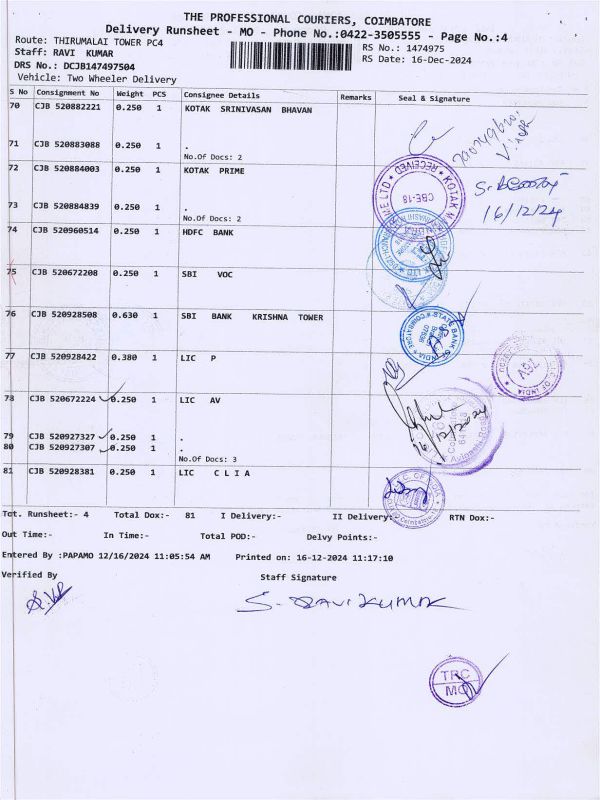 THE PROFESSIONAL COURIERS, COIMBATORE
Delivery Runsheet - MO - Phone No.:0422-3505555 - Page No.:4
Route: THIRUMALAI TOWER PC4
RS No.: 1474975
Staff: RAVI KUMAR
RS Date: 16-Dec-2024
DRS No.: DCJB147497504
Vehicle: Two Wheeler Delivery
S No Consignment No Weight PCS Consignee Details Remarks Seal & Signature
70 CJB 520882221 0.250 1 KOTAK SRINIVASAN BHAVAN
71 CJB 520883088 0.250 1 .
No.Of Docs: 2
72 CJB 520884003 0.250 1 KOTAK PRIME
73 CJB 520884839 0.250 1 .
No.Of Docs: 2
16/12/24
RECEIVED
CBE-18
KOTAK M
74 CJB 520960514 0.250 1 HDFC BANK
75 CJB 520672208 0.250 1 SBI VOC
76 CJB 520928508 0.630 1 SBI BANK KRISHNA TOWER
STATE BANK OF INDIA
COIMBATORE
77 CJB 520928422 0.380 1 LIC P
OF INDIA
78 CJB 520672224 0.250 1 LIC AV
79 CJB 520927327 0.250 1 .
80 CJB 520927307 0.250 1 .
No.Of Docs: 3
81 CJB 520928381 0.250 1 LIC C L I A
Tot. Runsheet:- 4 Total Dox:- 81 I Delivery:- II Delivery:- RTN Dox:-
Out Time:- In Time:- Total POD:- Delvy Points:-
Entered By :PAPAMO 12/16/2024 11:05:54 AM Printed on: 16-12-2024 11:17:10
Verified By Staff Signature
S. RAVIKUMAR
TRC
MO